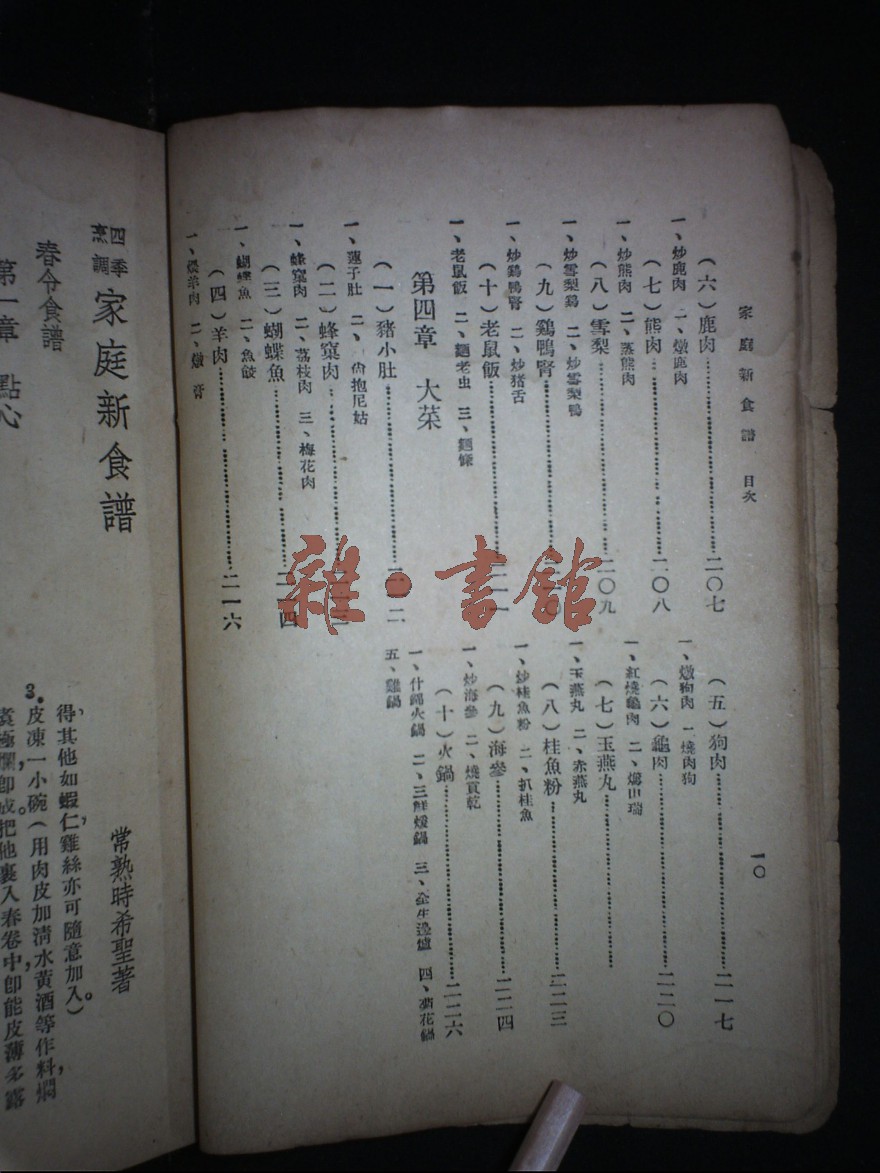 家庭新食譜 目次
一〇
(六)鹿肉……二〇七
一、炒鹿肉 二、燉鹿肉
(七)熊肉……二〇八
一、炒熊肉 二、蒸熊肉
(八)雪梨……二〇九
一、炒雪梨鷄 二、炒雪梨鴨
(九)鷄鴨腎……
一、炒鷄鴨腎 二、炒猪舌
(十)老鼠飯……
一、老鼠飯 二、麵老虫 三、麵條
第四章 大菜
(一)豬小肚……
一、蓮子肚 二、尚抱尼姑
(二)蜂窠肉……
一、蜂窠肉 二、荔枝肉 三、梅花肉
(三)蝴蝶魚……二一四
一、蝴蝶魚 二、魚餃
(四)羊肉……二一六
一、煨羊肉 二、燉
(五)狗肉……二一七
一、燉狗肉 二、燒肉狗
(六)龜肉……二二〇
一、紅燒龜肉 二、燉山瑞
(七)玉燕丸……
一、玉燕丸 二、赤燕丸
(八)桂魚粉……二二三
一、炒桂魚粉 二、扒桂魚
(九)海參……二二四
一、炒海參 二、燒貢乾
(十)火鍋……二二六
一、什錦火鍋 二、三鮮煖鍋 三、金生邊爐 四、菊花鍋
五、雞鍋
四季烹調 家庭新食譜
常熟時希聖著
春令食譜
第一章 點心
得,其他如蝦仁雞絲亦可隨意加入)。
3.皮凍一小碗(用肉皮加清水黃酒等作料,燜
煮極爛,即成。把他裹入春卷中,即能皮薄多露